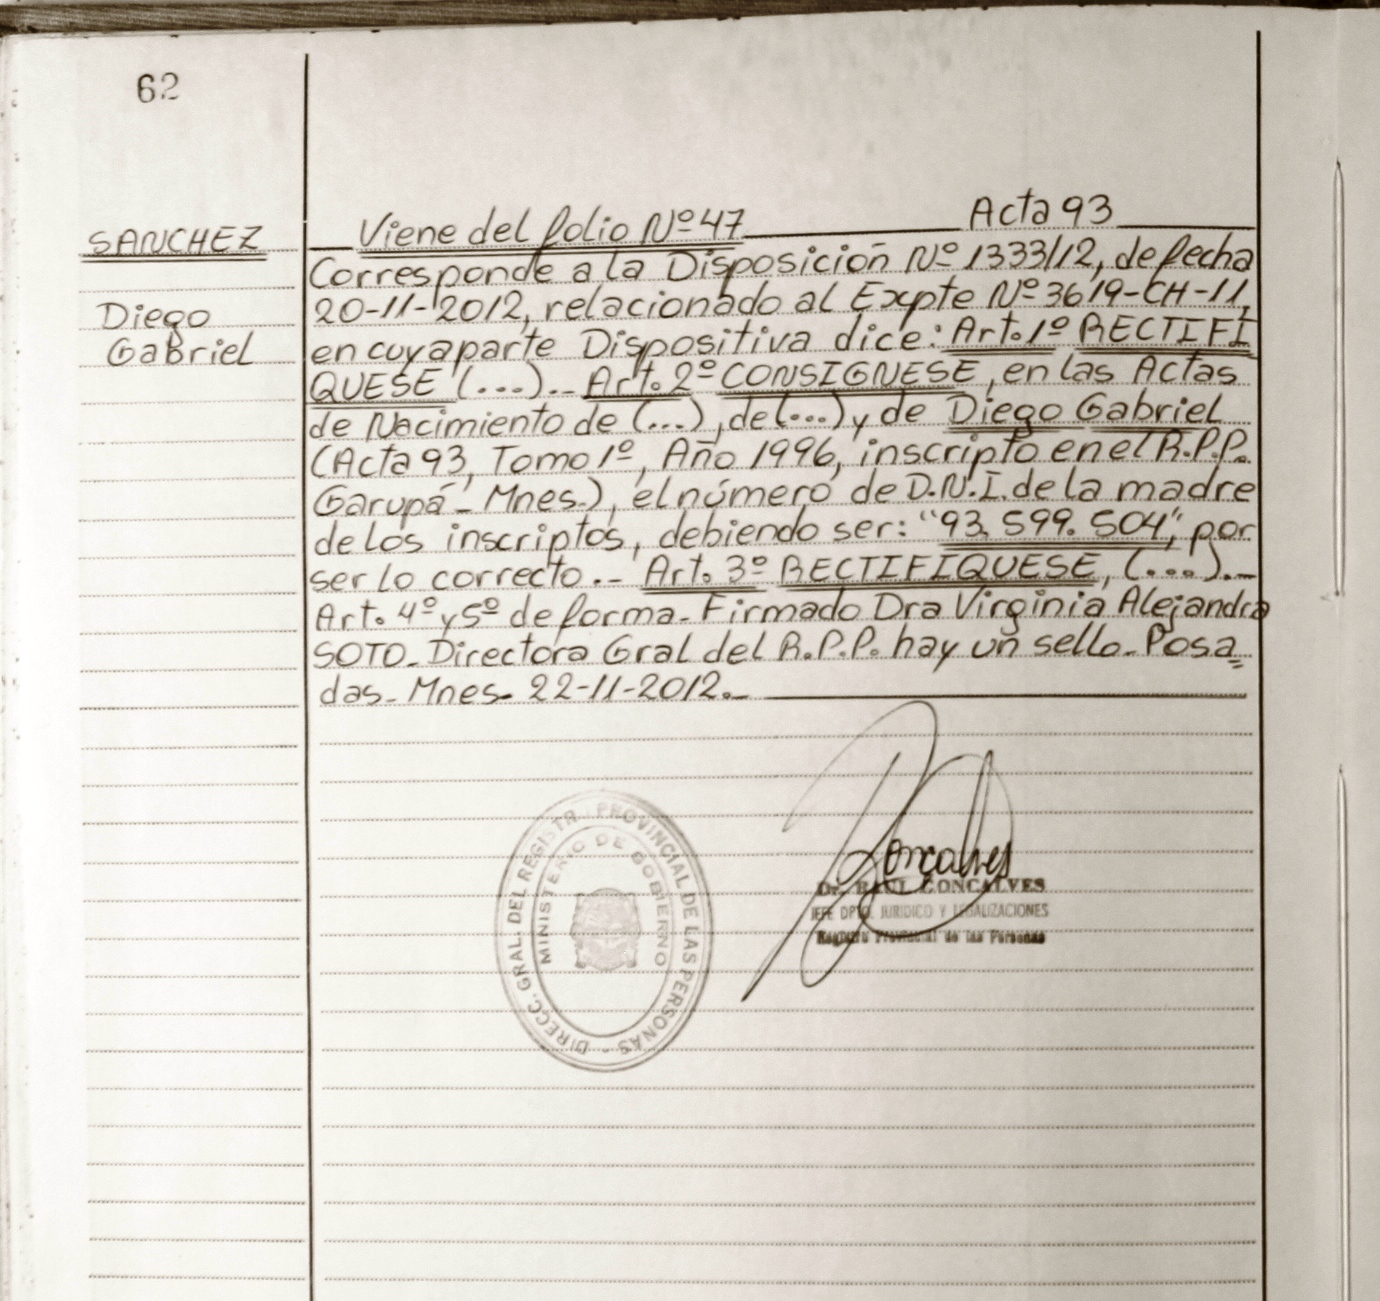 62
SANCHEZ
Diego
Gabriel
Viene del folio Nº 47 Acta 93
Corresponde a la Disposición Nº 1333/12, de fecha
20-11-2012, relacionado al Expte Nº 3619-CH-11,
en cuya parte Dispositiva dice: Art. 1º RECTIFI
QUESE (...)._ Art. 2º CONSIGNESE, en las Actas
de Nacimiento de (...), de (...) y de Diego Gabriel
(Acta 93, Tomo 1º, Año 1996, inscripto en el R.P.P.
Garupá - Mnes.), el número de D.N.I. de la madre
de los inscriptos, debiendo ser: "93.599.504", por
ser lo correcto.- Art. 3º RECTIFIQUESE, (...)._
Art. 4º y 5º de forma. Firmado Dra Virginia Alejandra
SOTO_ Directora Gral del R.P.P. hay un sello_ Posa=
das_ Mnes. 22-11-2012._
DIRECC. GRAL. DEL REGISTR. PROVINCIAL DE LAS PERSONAS -
MINISTERIO DE GOBIERNO
Goncalves
Dr. RAUL GONCALVES
JEFE DPTO. JURIDICO Y LEGALIZACIONES
Registro Provincial de las Personas